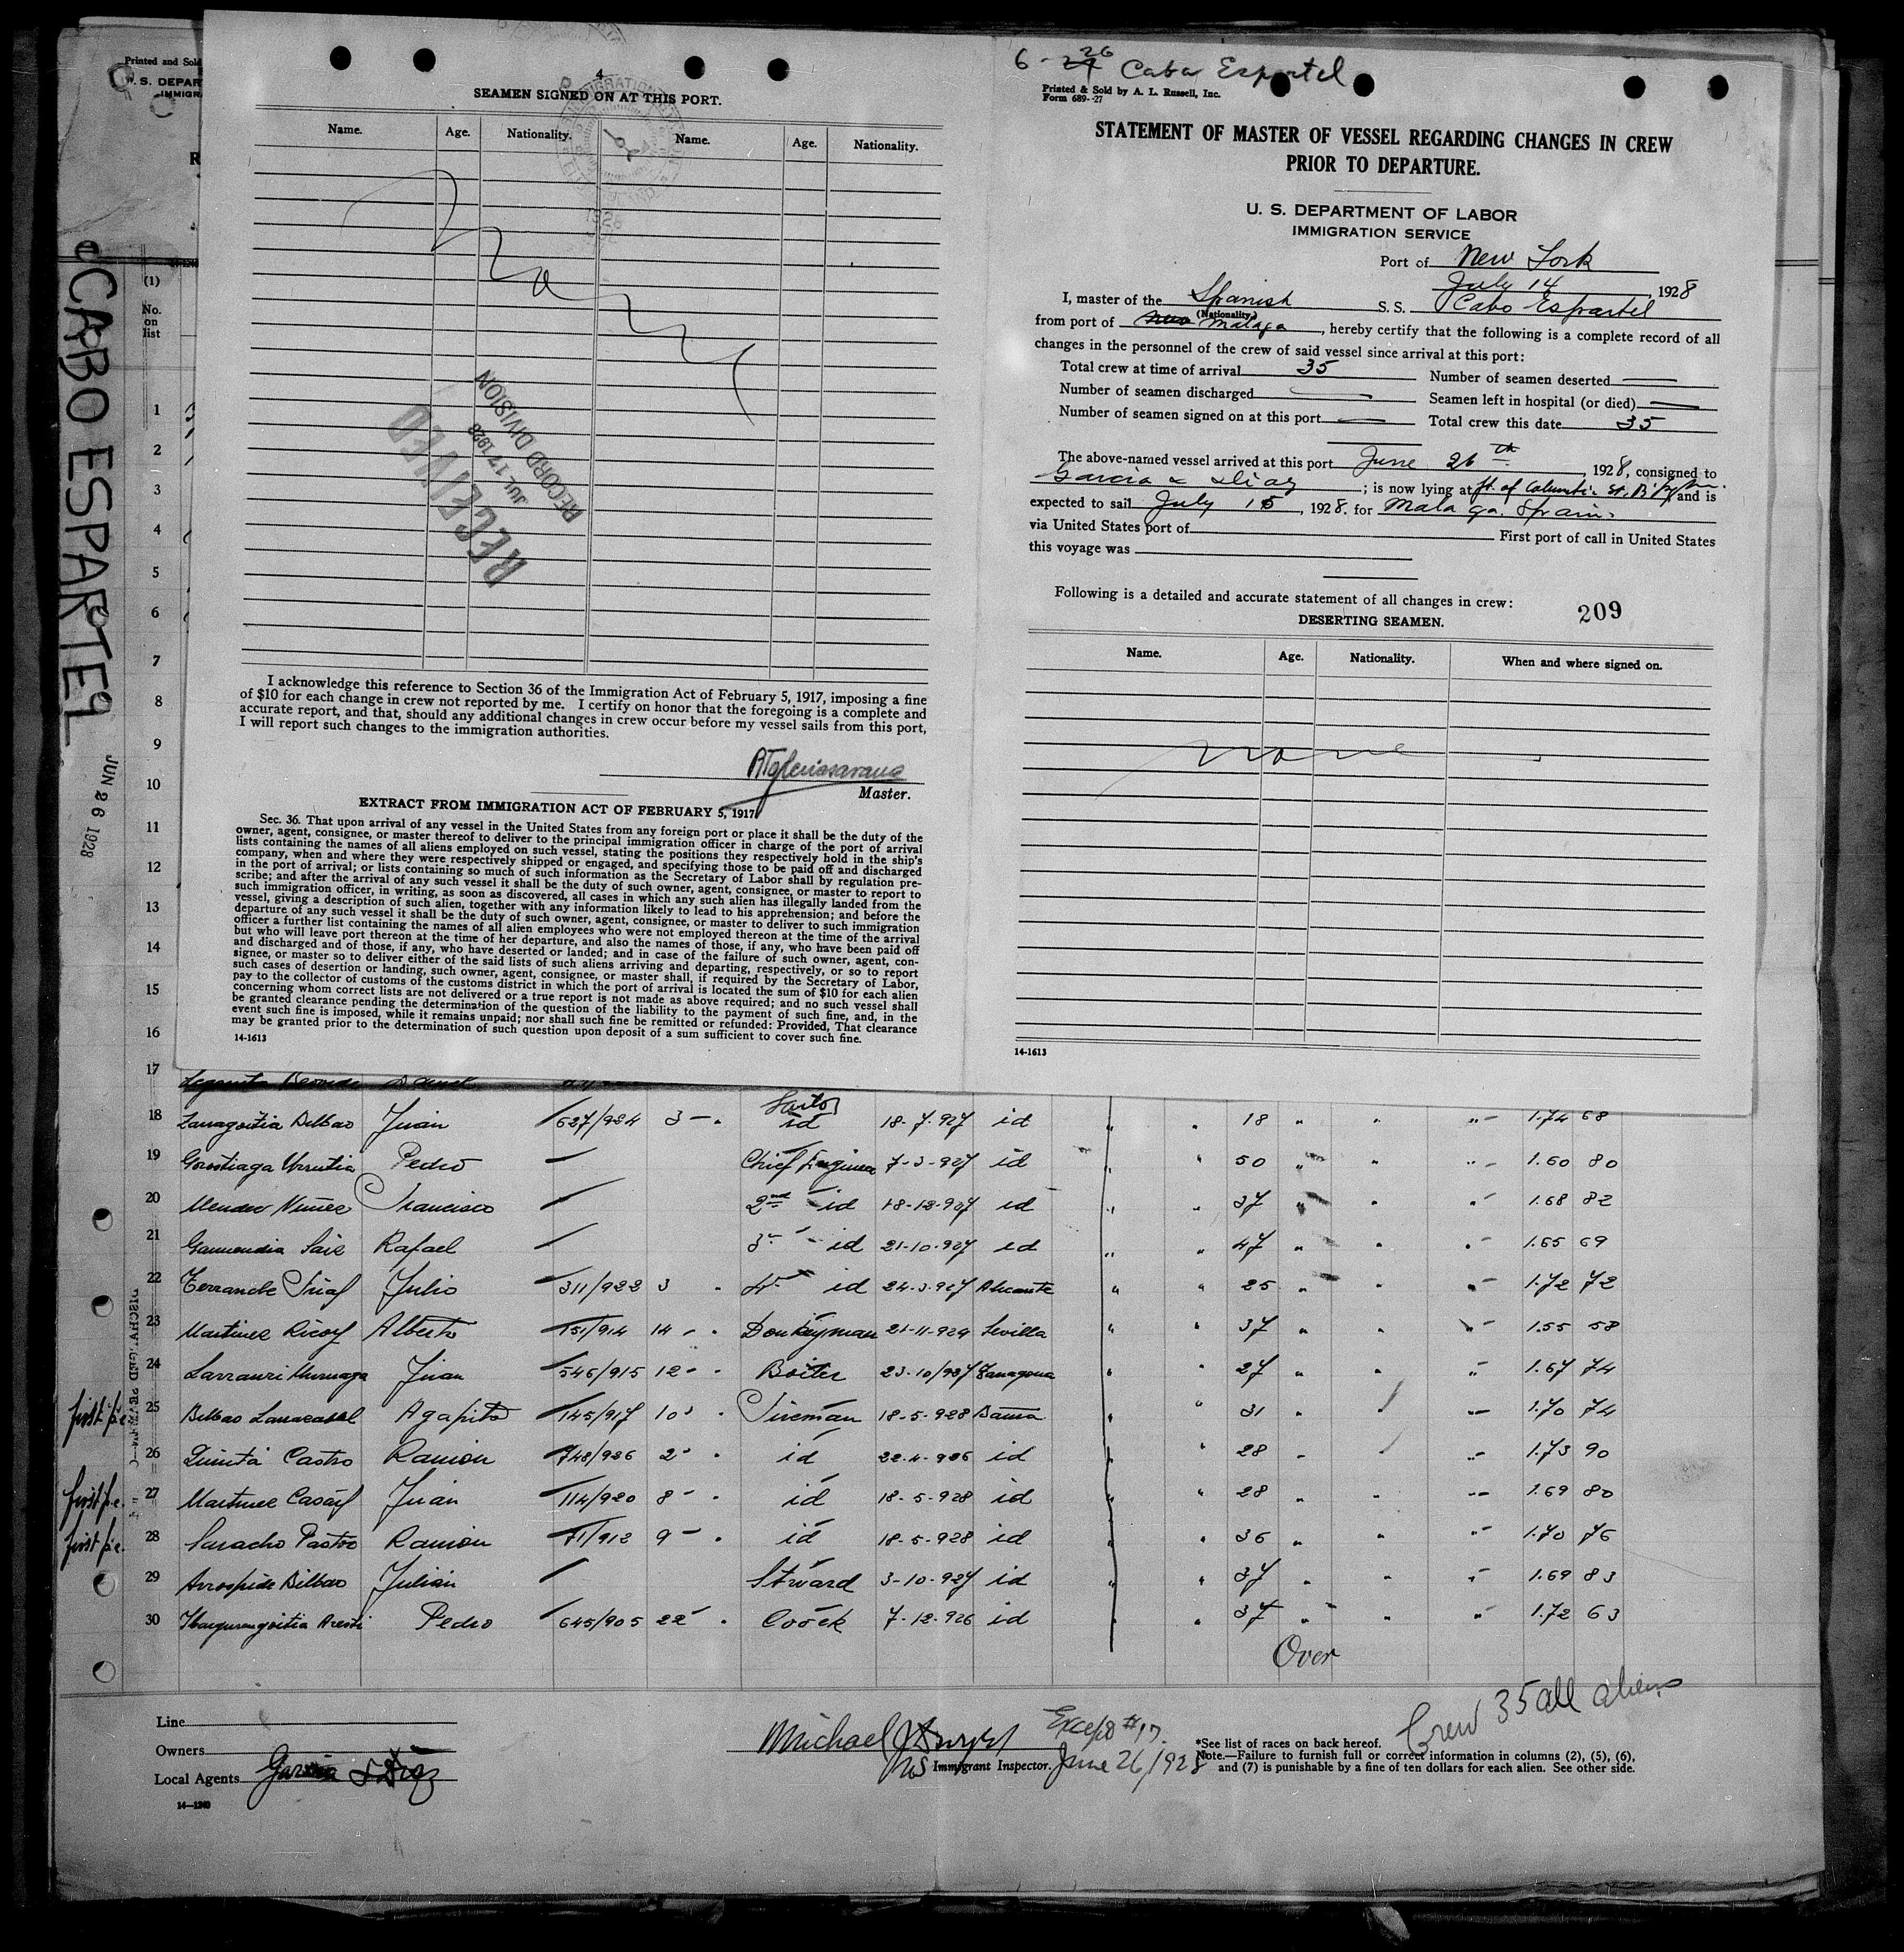 Printed and Sold
U. S. DEPAR
IMMIGR
R
CABO ESPARTEL
JUN 26 1928
(1)
No.
on
list
1
2
3
4
5
6
7
8
9
10
11
12
13
14
15
16
17
4
SEAMEN SIGNED ON AT THIS PORT.
Name. Age. Nationality. Name. Age. Nationality.
1928
RECEIVED
JUL 17 1928
RECORD DIVISION
I acknowledge this reference to Section 36 of the Immigration Act of February 5, 1917, imposing a fine
of $10 for each change in crew not reported by me. I certify on honor that the foregoing is a complete and
accurate report, and that, should any additional changes in crew occur before my vessel sails from this port,
I will report such changes to the immigration authorities.
Master.
EXTRACT FROM IMMIGRATION ACT OF FEBRUARY 5, 1917
Sec. 36. That upon arrival of any vessel in the United States from any foreign port or place it shall be the duty of the
owner, agent, consignee, or master thereof to deliver to the principal immigration officer in charge of the port of arrival
lists containing the names of all aliens employed on such vessel, stating the positions they respectively hold in the ship's
company, when and where they were respectively shipped or engaged, and specifying those to be paid off and discharged
in the port of arrival; or lists containing so much of such information as the Secretary of Labor shall by regulation pre-
scribe; and after the arrival of any such vessel it shall be the duty of such owner, agent, consignee, or master to report to
such immigration officer, in writing, as soon as discovered, all cases in which any such alien has illegally landed from the
vessel, giving a description of such alien, together with any information likely to lead to his apprehension; and before the
departure of any such vessel it shall be the duty of such owner, agent, consignee, or master to deliver to such immigration
officer a further list containing the names of all alien employees who were not employed thereon at the time of the arrival
but who will leave port thereon at the time of her departure, and also the names of those, if any, who have been paid off
and discharged and of those, if any, who have deserted or landed; and in case of the failure of such owner, agent, con-
signee, or master so to deliver either of the said lists of such aliens arriving and departing, respectively, or so to report
such cases of desertion or landing, such owner, agent, consignee, or master shall, if required by the Secretary of Labor,
pay to the collector of customs of the customs district in which the port of arrival is located the sum of $10 for each alien
concerning whom correct lists are not delivered or a true report is not made as above required; and no such vessel shall
be granted clearance pending the determination of the question of the liability to the payment of such fine, and, in the
event such fine is imposed, while it remains unpaid; nor shall such fine be remitted or refunded: Provided, That clearance
may be granted prior to the determination of such question upon deposit of a sum sufficient to cover such fine.
14-1613
6-26 Cabo Espartel
Printed & Sold by A. L. Russell, Inc.
Form 689--27
STATEMENT OF MASTER OF VESSEL REGARDING CHANGES IN CREW
PRIOR TO DEPARTURE.
U. S. DEPARTMENT OF LABOR
IMMIGRATION SERVICE
Port of New York
July 14, 1928
I, master of the Spanish S. S. Cabo Espartel
(Nationality)
from port of Malaga, hereby certify that the following is a complete record of all
changes in the personnel of the crew of said vessel since arrival at this port:
Total crew at time of arrival 35 Number of seamen deserted —
Number of seamen discharged — Seamen left in hospital (or died) —
Number of seamen signed on at this port — Total crew this date 35
The above-named vessel arrived at this port June 26th, 1928, consigned to
Garcia & Diaz; is now lying at ft. of Columbia St. B'klyn and is
expected to sail July 15, 1928. for Malaga. Spain.
via United States port of First port of call in United States
this voyage was
Following is a detailed and accurate statement of all changes in crew:
209
DESERTING SEAMEN.
Name. Age. Nationality. When and where signed on.
none
14-1613
18 Juan 627/924 3 - id 18-7-927 id " " 18 " " "- 1.74 68
19 Gorostiaga Urrutia Pedro Chief Engineer 7-3-927 id " " 50 " " "- 1.60 80
20 Mendez Nuñez Francisco 2nd id 18-12-927 id " " 37 " " "- 1.68 82
21 Garmendia Saiz Rafael 3r id 21-10-927 id " " 47 " " "- 1.65 69
22 Julio 311/922 3 4º id 24-3-927 Alicante " " 25 " " "- 1.72 72
23 Martinez Alberto 151/914 14 - Donkeyman 21-11-924 Sevilla " " 37 " " "- 1.55 58
24 Larrauri Juan 546/915 12 - 23-10/927 Tarragona " " 27 " " "- 1.67 74
first pr. 25 Bilbao Agapito 145/917 10 - Fireman 18-5-928 " " 31 " "- 1.70 74
26 Quinta Castro Ramon 748/926 2 - id 22-4-926 id " " 28 " "- 1.73 90
first pr. 27 Martinez Juan 114/920 8 - id 18-5-928 id " " 28 " " "- 1.69 80
first pr. 28 Saracho Pastor Ramon 71/912 9 - id 18-5-928 id " " 36 " " "- 1.70 76
29 Arrospide Bilbao Julian Stward 3-10-927 id " " 37 " " "- 1.69 83
30 Pedro 645/905 22 - Coock 7-12-926 id " " 37 " " "- 1.72 63
Over
Crew 35 all aliens
Line
Owners
Local Agents Garcia & Diaz
14—1240
Michael J. Murphy Except #17.
Immigrant Inspector. June 26/1928
*See list of races on back hereof.
Note.—Failure to furnish full or correct information in columns (2), (5), (6),
and (7) is punishable by a fine of ten dollars for each alien. See other side.